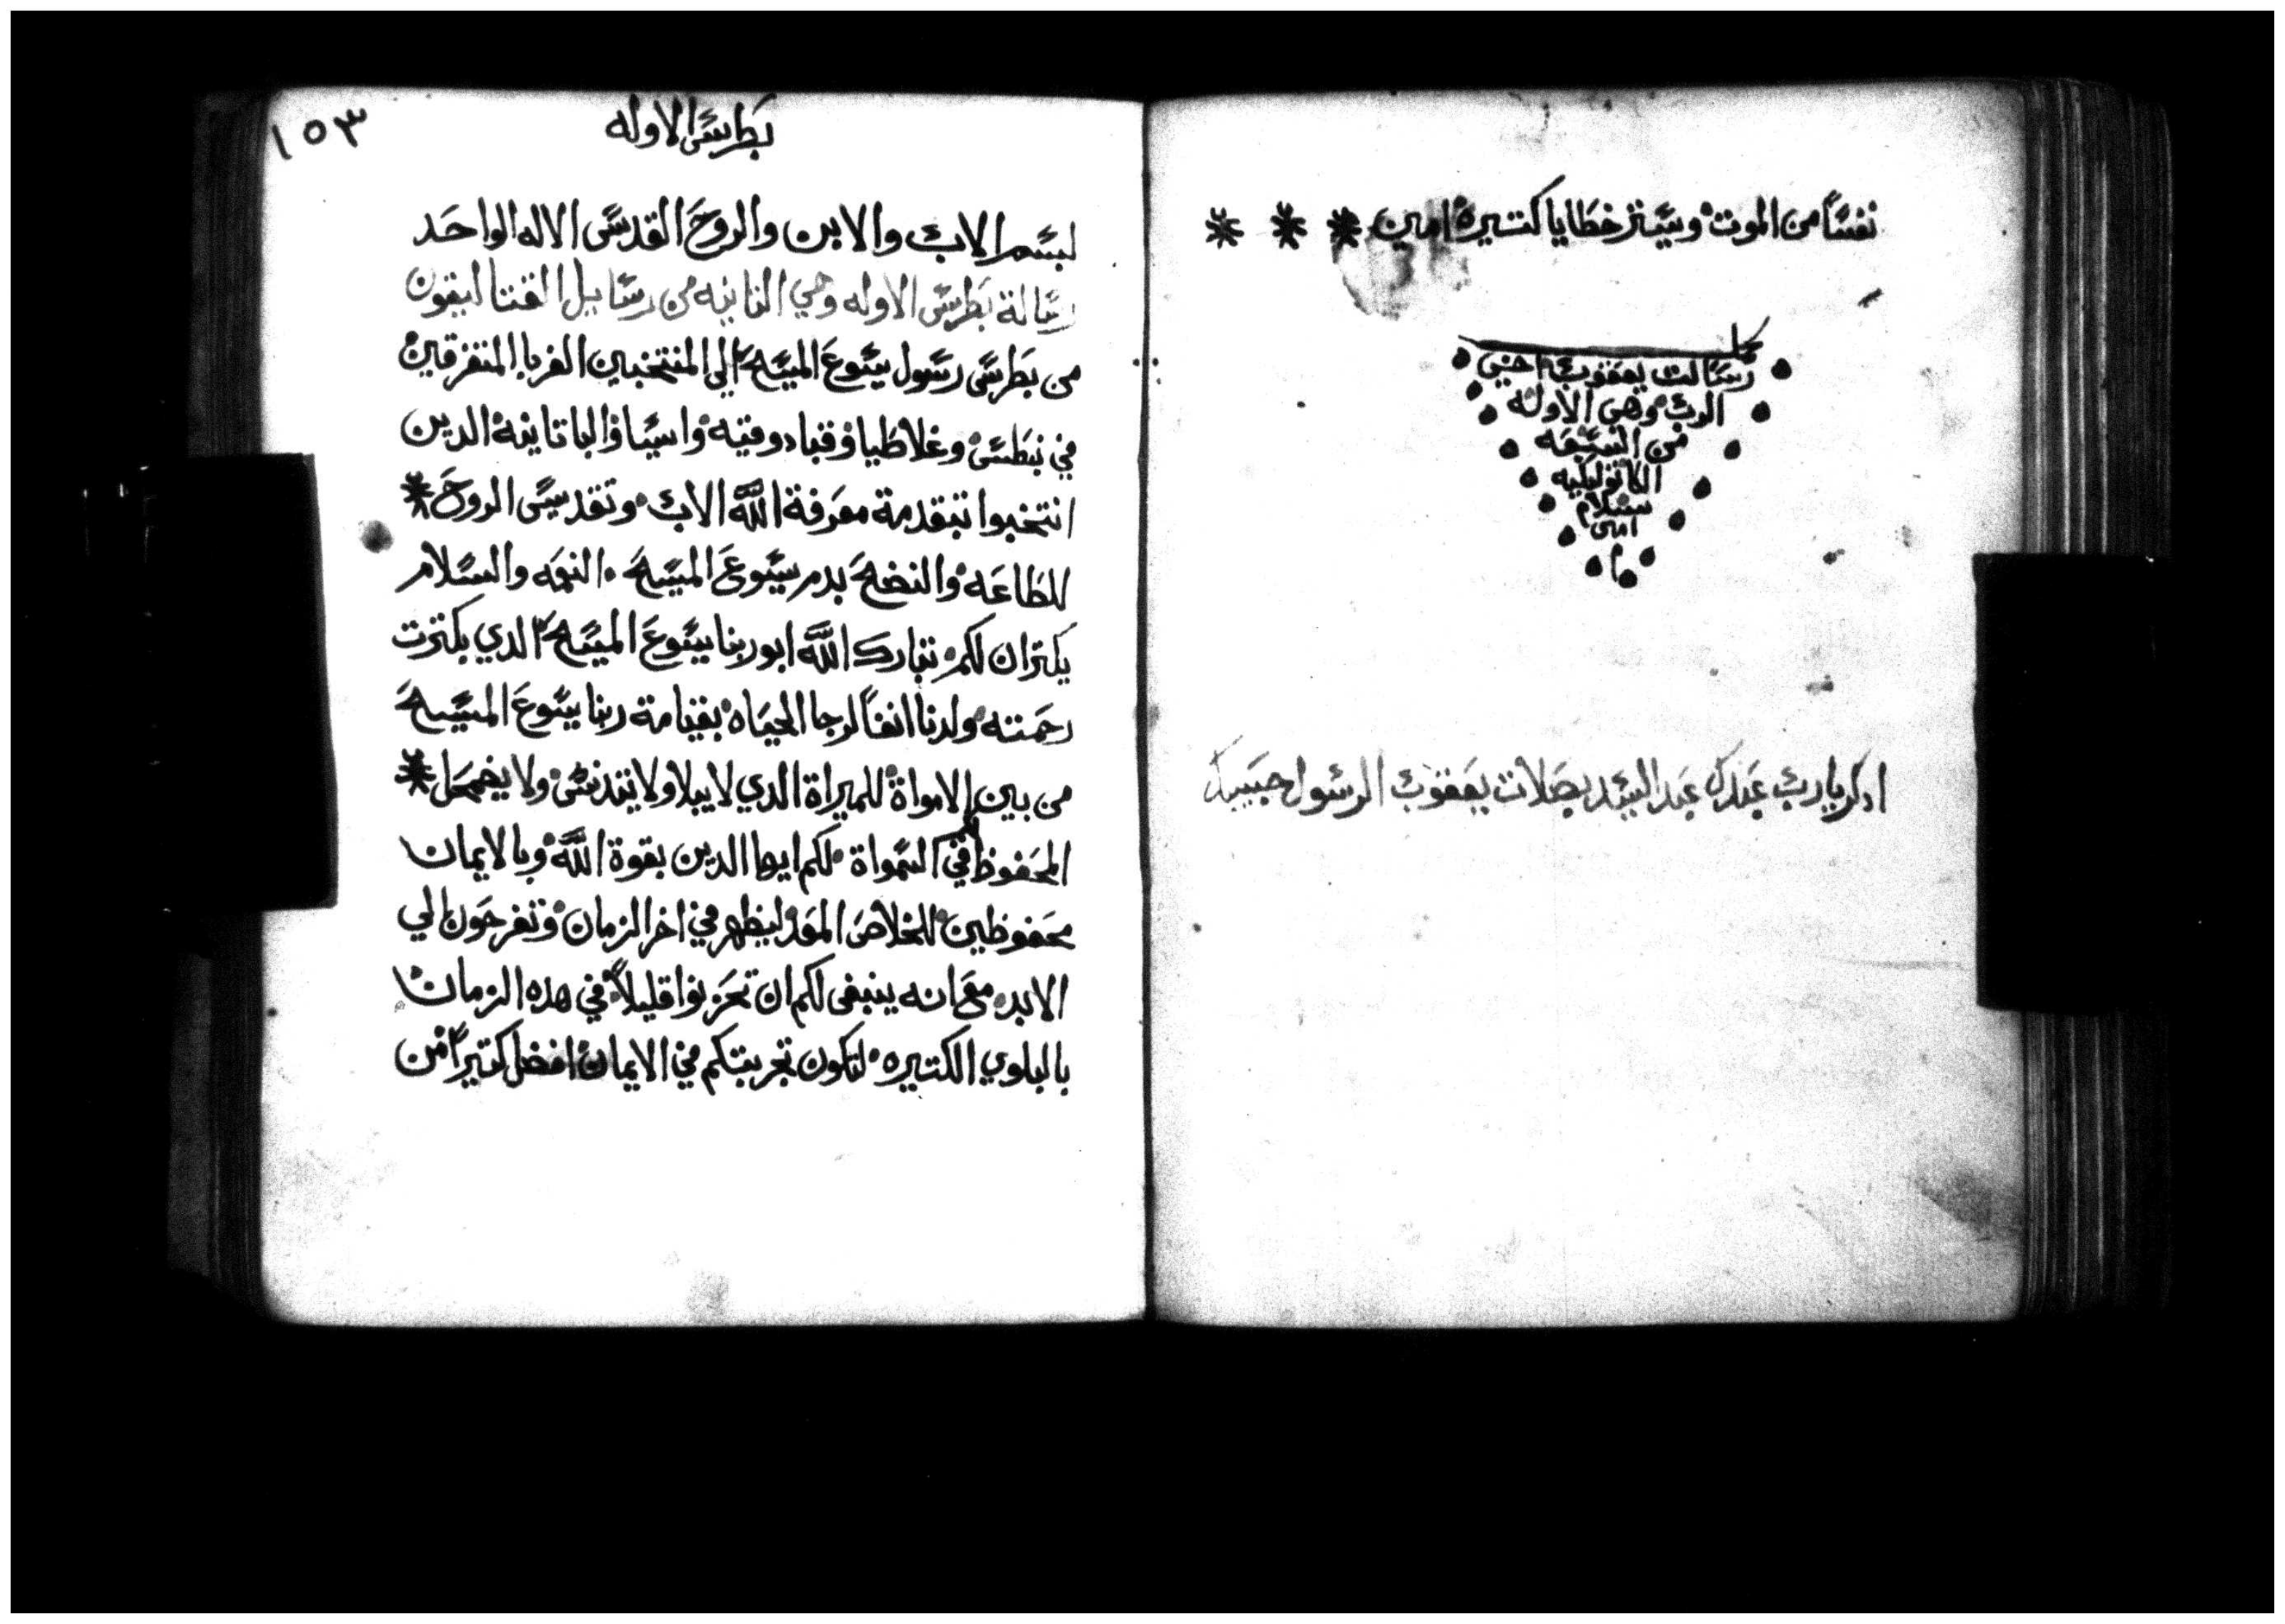 نفسًا من الموت ويستر خطايا كتيرة امين * * *
كملت
رسالت يعقوب اخي
الرب وهي الاوله
من السبعه
الكاتوليكيه
بسلام
امين
ادكر يارب عبدك عبد السيد بصلات يعقوب الرسول حبيبك
١٥٣
بطرس الاوله
بسم الاب والابن والروح القدس الاله الواحد
رسالة بطرس الاوله وهي التانيه من رسايل القتاليقون
من بطرس رسول يسوع المسيح الي المنتخبين الغربا المتفرقين
في نبطس وغلاطيا وقبادوقيه واسيا والباتانيه الدين
انتخبوا بتقدمة معرفة الله الاب وتقديس الروح *
للطاعه والنضح بدم يسوع المسيح النعمه والسلام
يكتران لكم تبارك الله ابو ربنا يسوع المسيح الدي بكترت
رحمته ولدنا انفًا لرجا الحياه بقيامة ربنا يسوع المسيح
من بين الامواة للميراة الدي لا يبلا ولا يتدنس ولا يضمحل *
المحفوظ في السمواة لكم ايها الدين بقوة الله وبالايمان
محفوظين للخلاص المعد ليظهر في اخر الزمان وتفرحون الي
الابد مع انه ينبغي لكم ان تحزنوا قليلاً في هده الزمان
بالبلوي الكتيره لتكون تجربتكم في الايمان افضل كتيرًا من